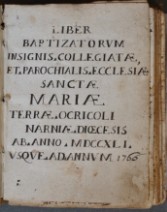 LIBER
BAPTIZATORVM
INSIGNIS. COLLEGIATÆ,
ET. PAROCHIALIS. ECCLESIÆ
SANCTÆ
MARIÆ.
TERRÆ. OCRICOLI
NARNIÆ. DIŒCESIS
AB. ANNO. MDCCXLI.
VSQVE. AD ANNVM. 1766